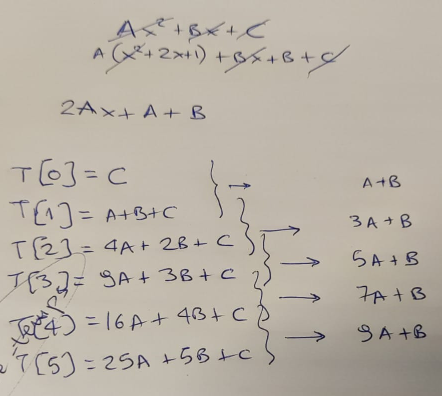 Ax² + Bx + C
A(x² + 2x + 1) + Bx + B + C
2Ax + A + B
T[0] = C
T[1] = A + B + C
T[2] = 4A + 2B + C
T[3] = 9A + 3B + C
(4) = 16A + 4B + C
T[5] = 25A + 5B + C
→ A + B
→ 3A + B
→ 5A + B
→ 7A + B
→ 9A + B